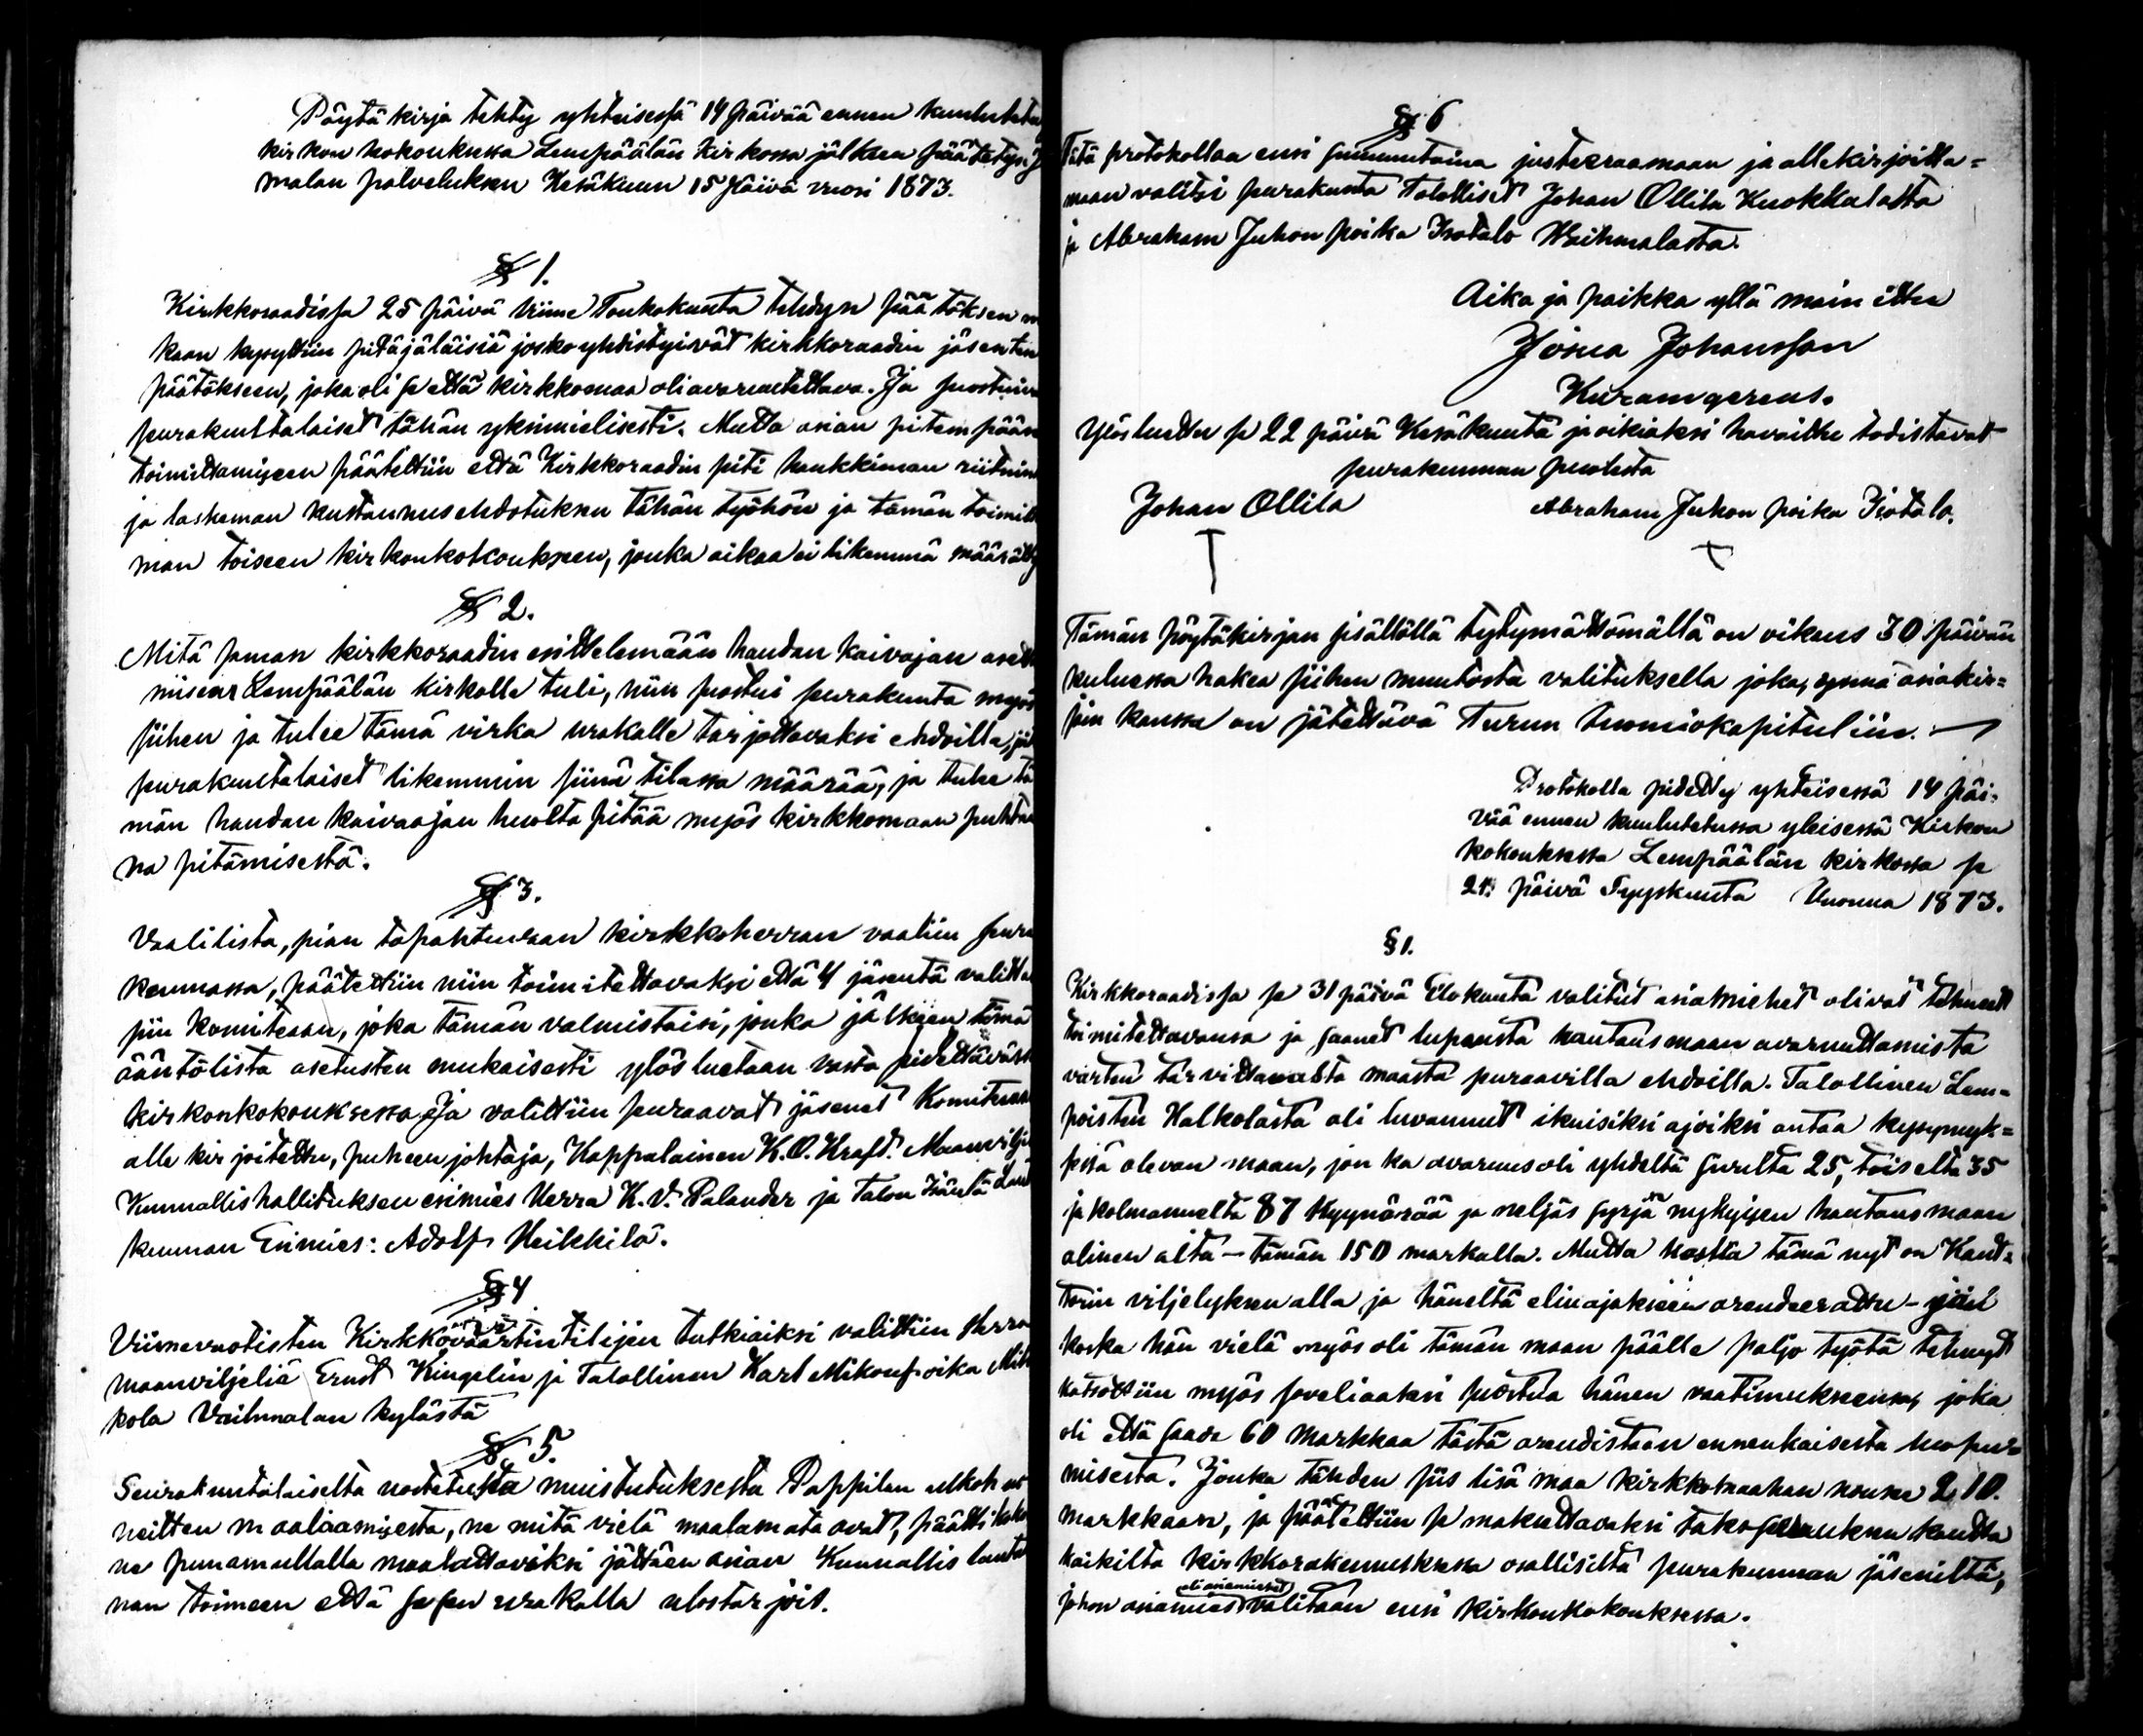 Pöytäkirja tehty yhteisessä 14 päivää ennen kuulutetu
kirkon kokouksessa Lempäälän kirkossa jälkeen päätetyn Ju
malan palveluksen Kesäkuun 15 päivä vuosi 1873.
§ 1.
Kirkkoraadissa 25 päivä viime Toukokuuta tehdyn päätöksen m
kaan kysyttiin pitäjäläisiä josko yhdistyivät kirkkoraadin jäsenten
päätökseen, joka oli se että kirkkomaa oli avarautettava. Ja suostuiva
seurakuntalaiset tähän yksimielisesti. Mutta asian pitempään
toimittamiseen päätettiin että Kirkkoraadin piti hankkiman riitnin
ja laskeman kustannusehdotuksen tähän työhön ja tämän toimitta
man toiseen kirkonkokoukseen, jonka aikaa ei likemmä määrätty
§ 2.
Mitä saman kirkkoraadin esittelemään haudan kaivajan asetta
miseen Lempäälän kirkolle tuli, niin suostui seurakunta myös
siihen ja tulee tämä virka urakalle tarjottavaksi ehdoilla, joi
seurakuntalaiset likemmin siinä tilassa määrää, ja tulee tä
män haudan kaivaajan huolta pitää myös kirkkomaan puhtaa
na pitämisestä.
§ 3.
Vaalilista, pian tapahtuvaan kirkkoherran vaaliin seura
kunnassa, päätettiin niin toimitettavaksi että 4 jäsentä valitta
siin komiteaan, joka tämän valmistaisi, jonka jälkeen tämä
ääntölista asetusten mukaisesti ylösluetaan vasta pidettäväss
kirkonkokouksessa. Ja valittiin seuraavat jäsenet Komiteaan
alle kirjoitettu, puheenjohtaja, Kappalainen K.O. Kraft. Maanvilje
Kunnallishallituksen esimies Herra K.V. Palander ja talon Isäntä Laut
kunnan Esimies: Adolf Heikkilä.
§ 4
Viimevuotisten Kirkkoväärtin tilijen tutkiaiksi valittiin Herra
maanviljeliä Ernst Kingelin ja Talollinen Karl Mikonpoika Mik
kola Vaihmalan kylästä
§ 5.
Seurakuntalaiselta nostetusta muistutuksesta Pappilan ulkohuo
neitten maalaamisesta, ne mitä vielä maalamata ovat, päätti koko
ne punamullalla maalattaviksi jättäen asian Kunnallis lauta
nan toimeen että se sen urakalla ulostarjois.
§ 6
Tätä protokollaa ensi sunnuntaina justeeraamaan ja allekirjoitta=
maan valitsi seurakunta Talolliset Johan Ollila Kuokkalasta
ja Abraham Juhon poika Isotalo Waihmalasta.
Aika ja paikka yllä mainittu
Josua Johansson
Kuramgerens.
Ylösluettu se 22 päivä Kesäkuuta ja oikiaksi havaittu todistavat
seurakunnan puolesta
Johan Ollila Abraham Juhon poika Isotalo.
Tämän pöytäkirjan sisällöllä tytymättömällä on oikeus 30 päivän
kuluessa hakea siihen muutosta valituksella joka, synnä asiakir=
join kanssa on jätettävä Turun tuomiokapituliin.
Protokolla pidetty yhteisessä 14 päi=
vää ennen kuulutetussa yleisessä Kirkon
kokouksessa Lempäälän kirkossa se
21 päivä Syyskuuta Vuonna 1873.
§ 1.
Kirkkoraadissa se 31 päivä Elokuuta valitut asiamiehet olivat tehneet
toimitettavansa ja saanet lupausta hautausmaan avaruuttamista
varten tarvittavasta maasta seuraavilla ehdoilla. Talollinen Lem=
poisten Halkolasta oli luvannut ikuisiksi ajoiksi antaa kysymyk=
sessä olevan maan, jonka avaruus oli yhdeltä sivulta 25, toiselta 35
ja kolmannelta 87 kyynärää ja neljäs syrjä nykyisen hautausmaan
olinen aita — tämän 150 markalla. Mutta koska tämä nyt on Kant=
torin viljelyksen alla ja häneltä elinajakseen arendeerattu - ja
koska hän vielä myös oli tämän maan päälle paljo työtä tehnyt
katsottiin myös soveliaaksi suostua hänen vaatimukseensa, joka
oli että saada 60 markkaa tästä arendistaan ennenkaisesta luopu=
misesta. Jonka tähden siis lisä maa kirkkomaahan nousee 210.
markkaan, ja päätettiin se maksettavaksi taksoituksen kautta
kaikilta kirkkorakennuksessa osallisilta seurakunnan jäseniltä,
johon asiamies valitaan ensi kirkonkokouksessa.